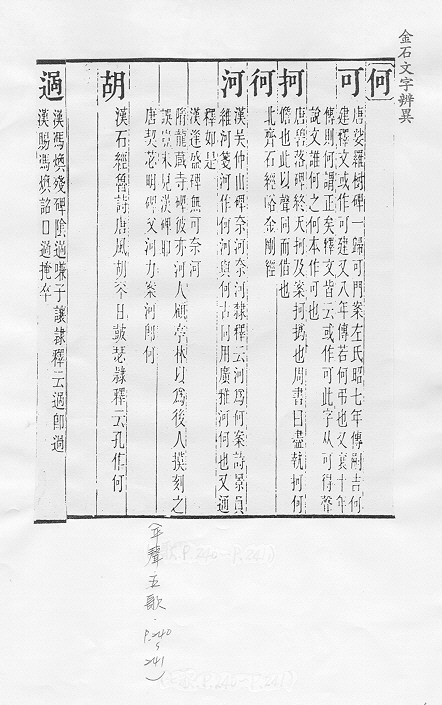 金石文字辨異
何
可
唐娑羅樹碑一歸可門案左氏昭七年傳嗣吉何
建釋文或作可建又八年傳若何弔也又襄十年
傳則何謂正矣釋文皆云或作可此字从可得聲
說文誰何之何本作可也
抲
唐碧落碑終天抲及案抲撝也周書曰盡執抲何
儋也此以聲同而借也
㣔
北齊石經峪金剛經
河
漢吳仲山碑奈河奈河隸釋云河爲何案詩景員
維河箋河作何河與何古同用廣雅河何也又通
釋如是
漢逢盛碑無可奈河
隋龍藏寺碑彼亦河人顧亭林以爲後人摸刻之
誤豈未見漢碑耶
唐契苾明碑父河力案河即何
胡
漢石經魯詩唐風胡不日鼓瑟隸釋云孔作何
過
漢馮煥殘碑陰過嗛子讓隸釋云過即過
漢賜馮煥詔口過掩卒
(平聲·五歌·P.240
5
241)